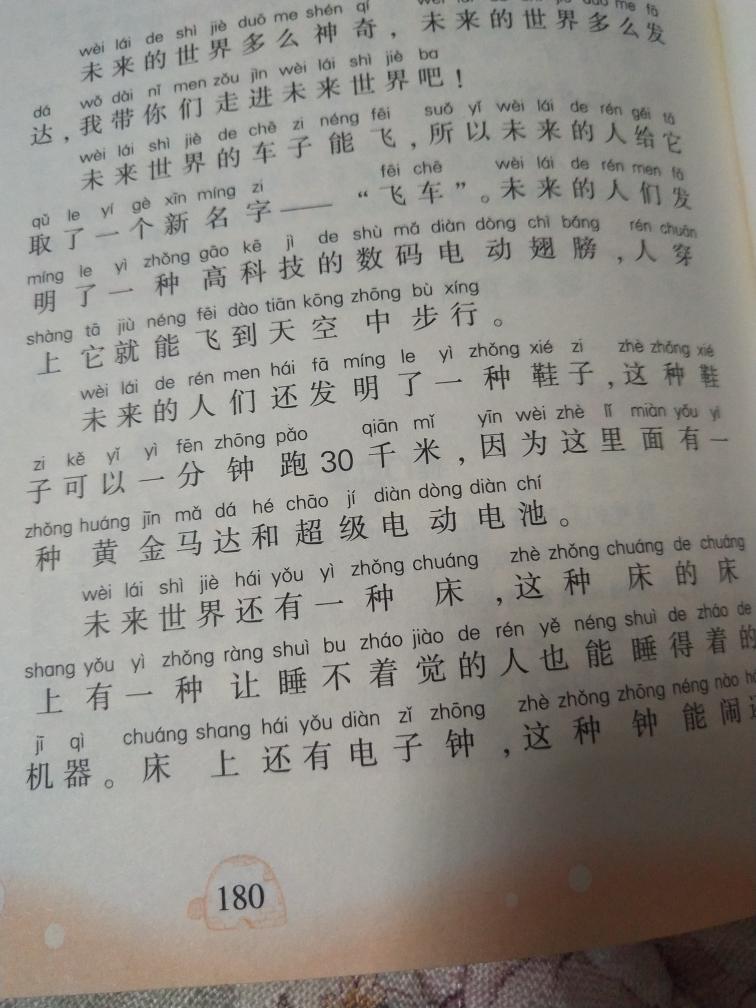 wèi lái de shì jiè duō me shén qí
未来的世界多么神奇，未来的世界多么发
dá wǒ dài nǐ men zǒu jìn wèi lái shì jiè ba
达，我带你们走进未来世界吧！
wèi lái shì jiè de chē zi néng fēi suǒ yǐ wèi lái de rén gěi tā
未来世界的车子能飞，所以未来的人给它
qǔ le yí gè xīn míng zi fēi chē wèi lái de rén men fā
取了一个新名字——“飞车”。未来的人们发
míng le yì zhǒng gāo kē jì de shù mǎ diàn dòng chì bǎng rén chuān
明了一种高科技的数码电动翅膀，人穿
shàng tā jiù néng fēi dào tiān kōng zhōng bù xíng
上它就能飞到天空中步行。
wèi lái de rén men hái fā míng le yì zhǒng xié zi zhè zhǒng xié
未来的人们还发明了一种鞋子，这种鞋
zi kě yǐ yì fēn zhōng pǎo qiān mǐ yīn wèi zhè lǐ miàn yǒu yì
子可以一分钟跑30千米，因为这里面有一
zhǒng huáng jīn mǎ dá hé chāo jí diàn dòng diàn chí
种黄金马达和超级电动电池。
wèi lái shì jiè hái yǒu yì zhǒng chuáng zhè zhǒng chuáng de chuáng
未来世界还有一种床，这种床的床
shang yǒu yì zhǒng ràng shuì bu zháo jiào de rén yě néng shuì de zháo de
上有一种让睡不着觉的人也能睡得着的
jī qì chuáng shang hái yǒu diàn zǐ zhōng zhè zhǒng zhōng néng nào
机器。床上还有电子钟，这种钟能闹
180